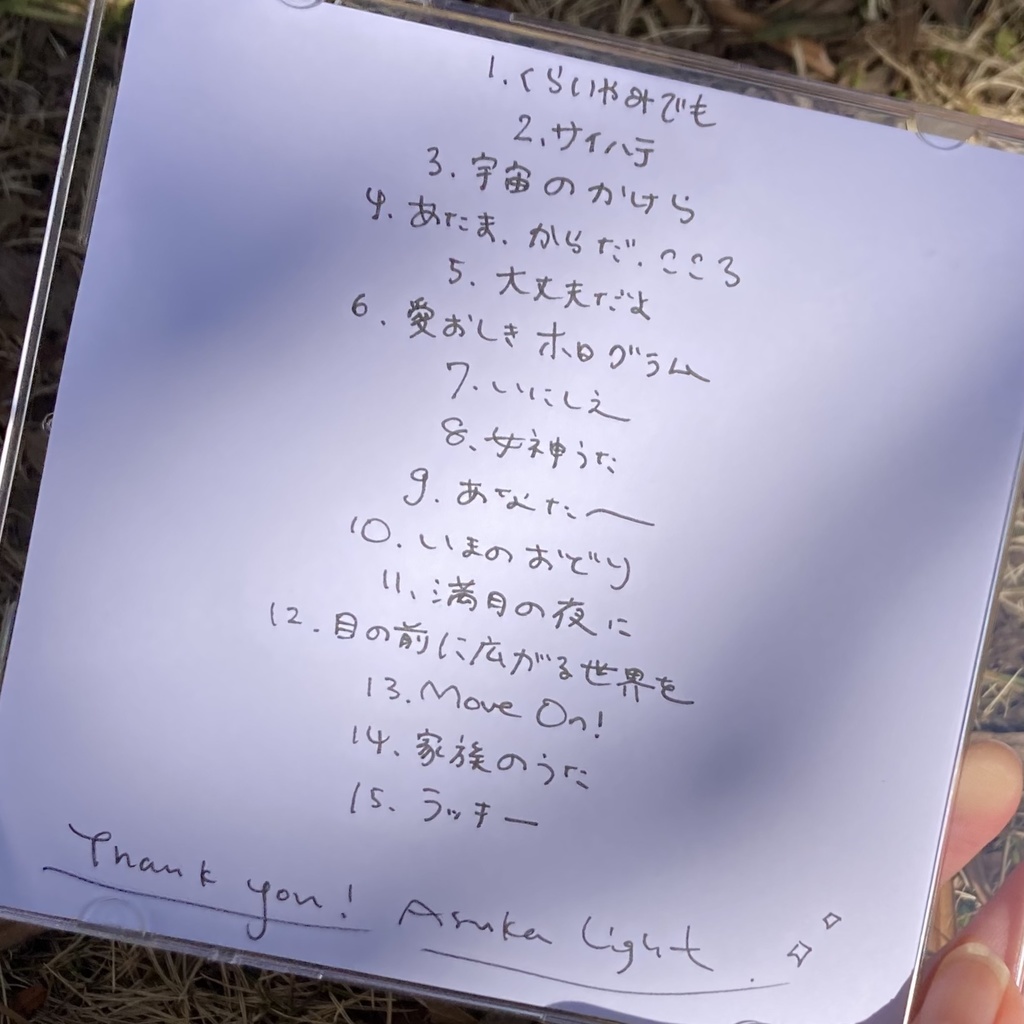 1. くらいやみでも
2. サイハテ
3. 宇宙のかけら
4. あたま、からだ、こころ
5. 大丈夫だよ
6. 愛おしきホログラム
7. いにしえ
8. 女神うた
9. あなたへ
10. いまのおどり
11. 満月の夜に
12. 目の前に広がる世界を
13. Move On!
14. 家族のうた
15. ラッキー
Thank you! Asuka Light